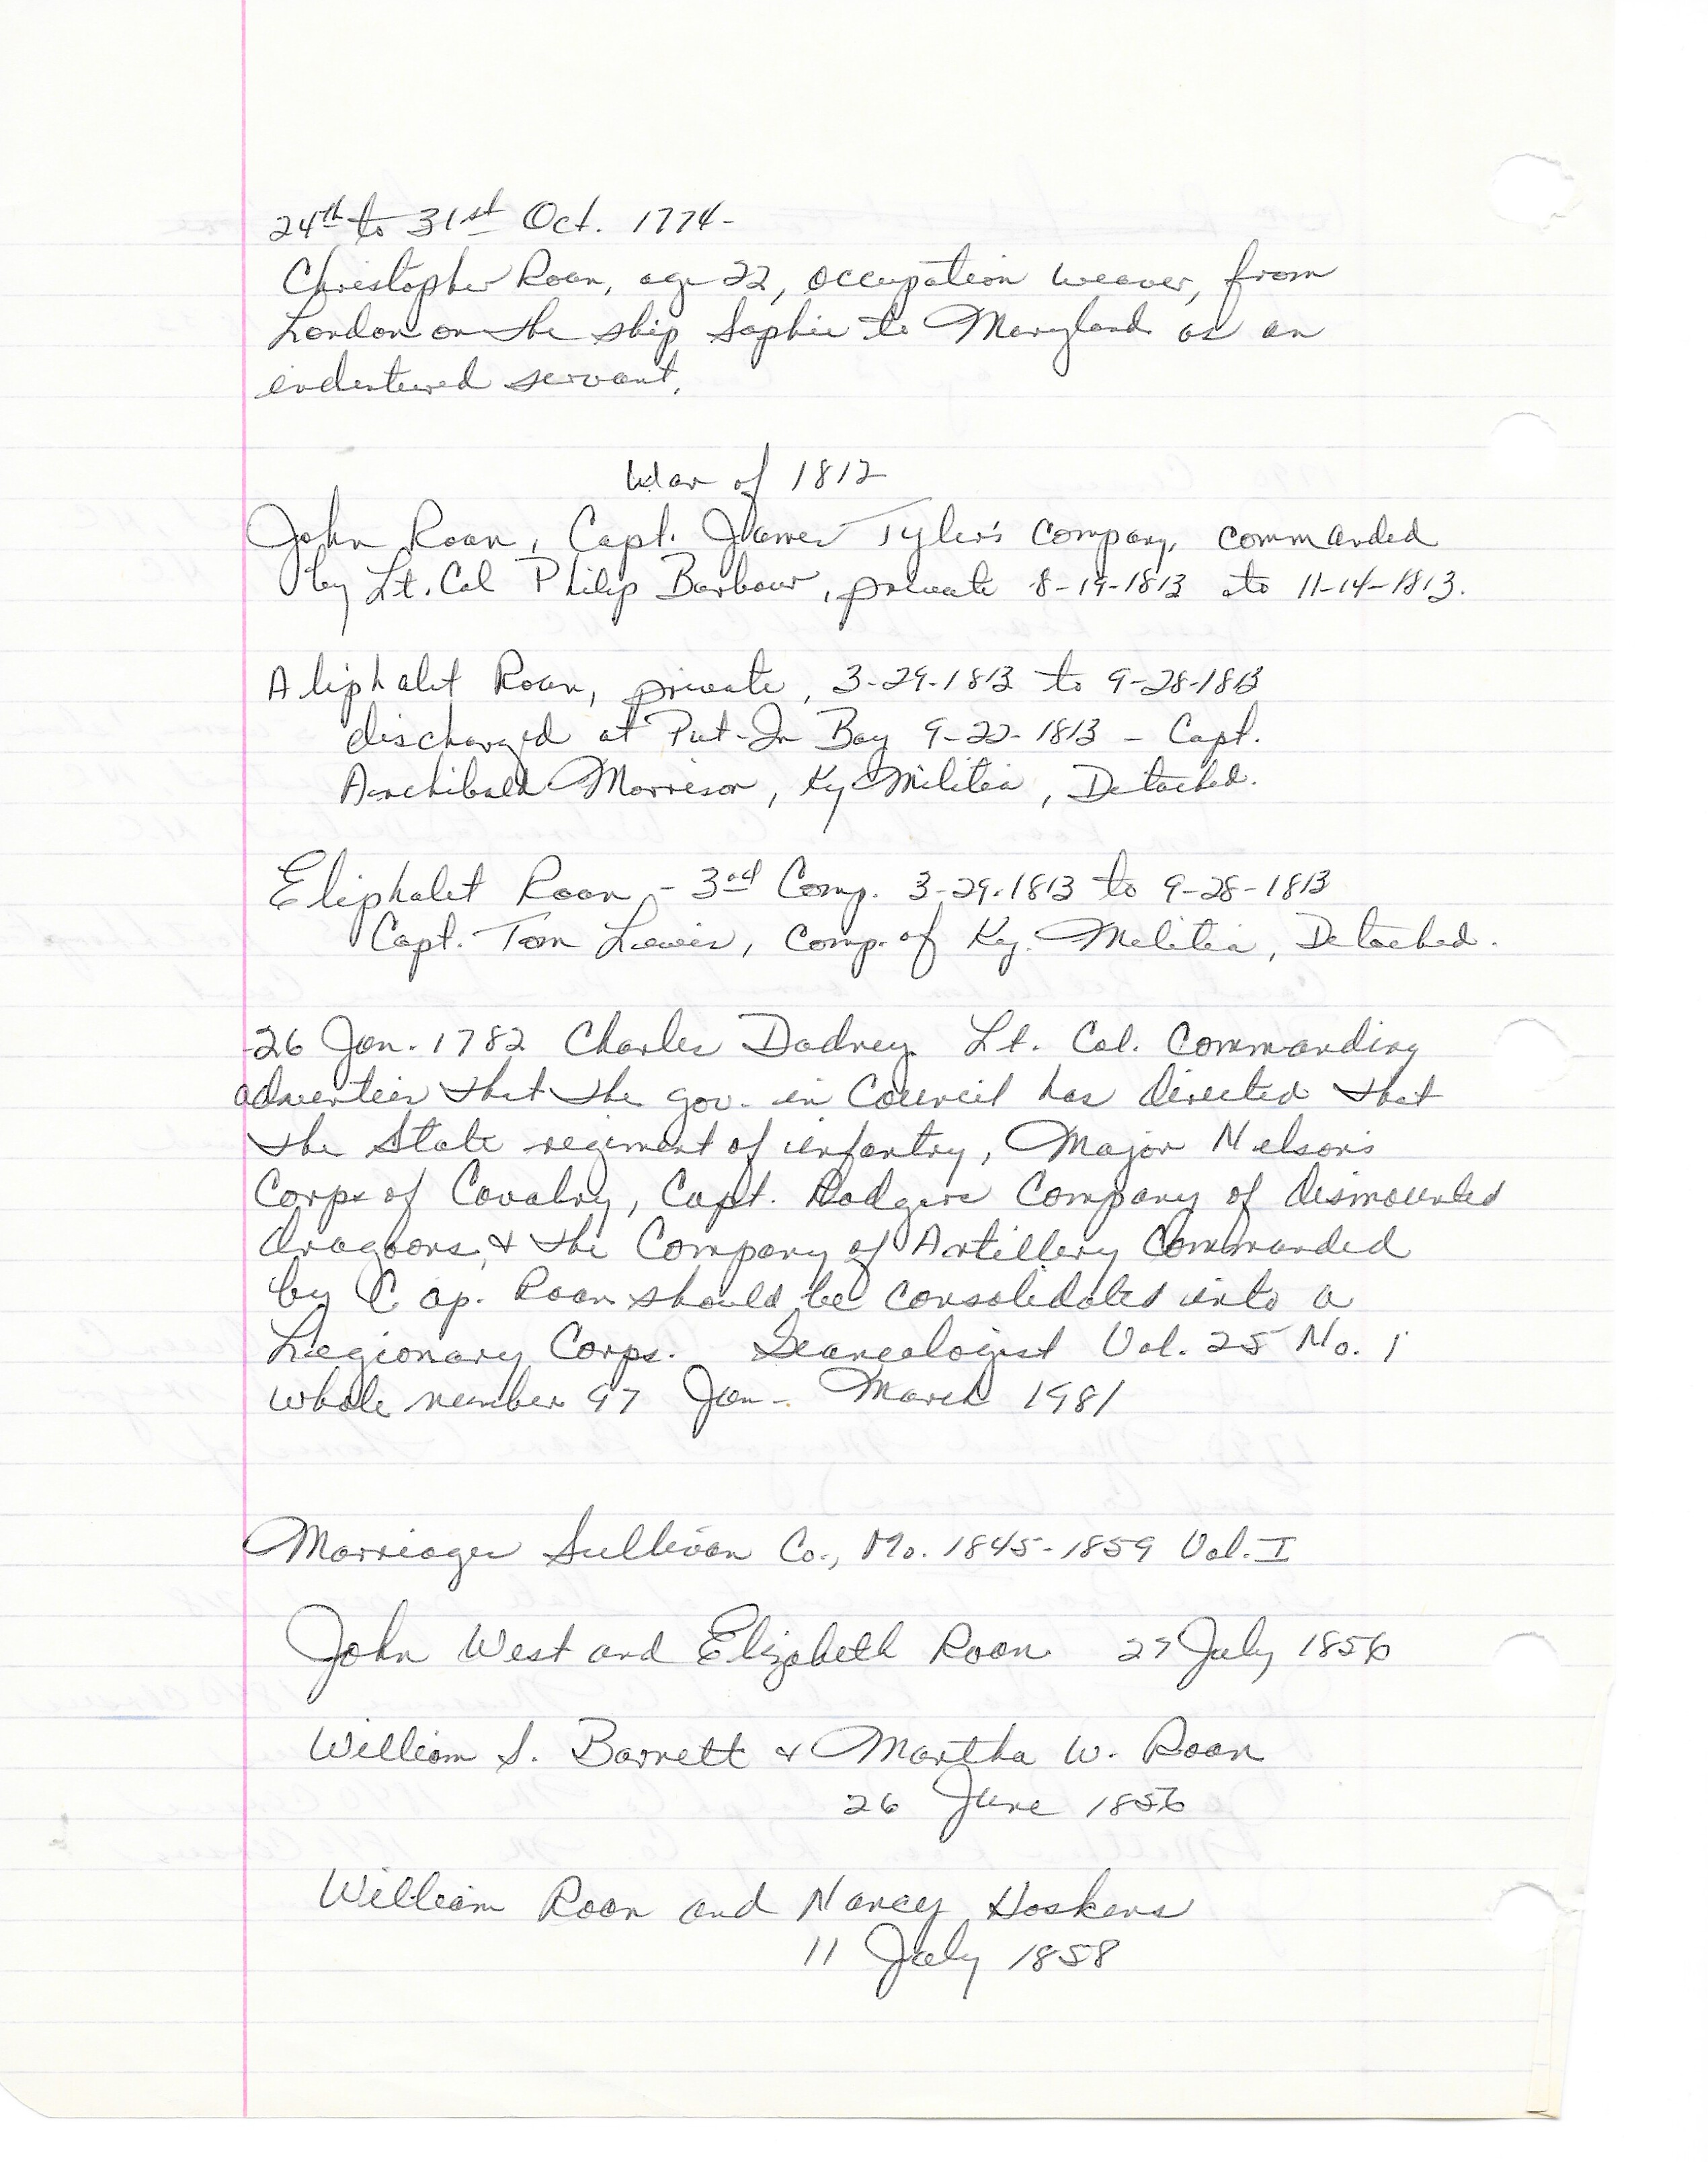 24th to 31st Oct. 1774-
Christopher Roan, age 22, occupation weaver, from
London on the ship Sophie to Maryland as an
indentured servant.
War of 1812
John Roan, Capt. James Tyler's company, commanded
by Lt. Col Philip Barbour, private 8-19-1813 to 11-14-1813.
Aliphalet Roan, private, 3-29-1813 to 9-28-1813
discharged at Put-In Bay 9-22-1813 - Capt.
Archibald Morrison, Ky Militia, Detached.
Eliphalet Roan - 3rd Comp. 3-29-1813 to 9-28-1813
Capt. Tom Lewis, Comp. of Ky. Militia, Detached.
26 Jan. 1782 Charles Dadney Lt. Col. Commanding
adverties that the gov. in Council has directed that
the State regiment of infantry, Major Nelson's
Corps of Cavalry, Capt. Rodgers Company of dismounted
dragoons, & the Company of Artillery Commanded
by Cap. Roan should be consolidated into a
Legionary Corps. Vol. 25 No. 1
whole number 97 Jan - March 1981
Marriages Sullivan Co., Mo. 1845-1859 Vol. I
John West and Elizabeth Roan 27 July 1856
William S. Barnett & Martha W. Roan
26 June 1856
William Roan and Nancy Hoskens
11 July 1858